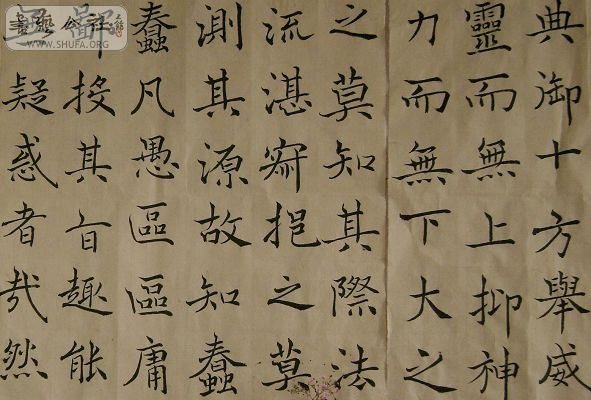 典御十方舉威
靈而無上抑神
力而無下大之
之莫知其際法
流湛寂挹之莫
測其源故知蠢
蠢凡愚區區庸
鄙投其旨趣能
疑惑者哉然
WWW.SHUFA.ORG